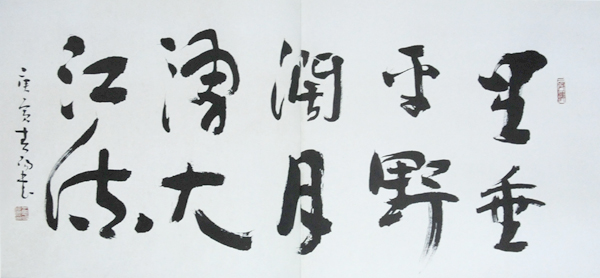 星垂
平野
濶月
湧大
江流
庚寅春